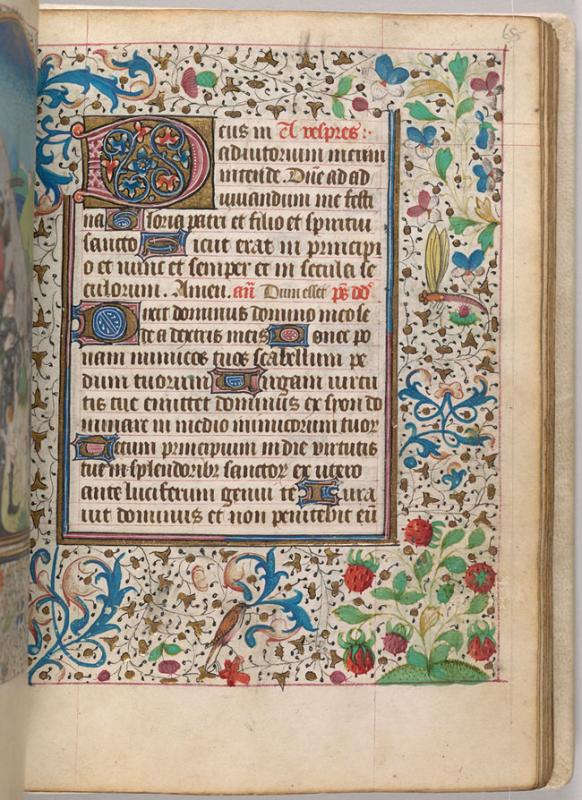 68
Deus in A vespres:
adiutorium meum
intende. Dñe ad ad
iuuandum me festi
na Gloria patri et filio et spiritui
sancto Sicut erat in principi
o et nunc et semper et in secula se
culorum. Amen. añ Dum esset ps dd
Dixit dominus domino meo se
de a dextris meis Donec po
nam inimicos tuos scabellum pe
dum tuorum Virgam uirtu
tis tue emittet dominus ex syon do
minare in medio inimicorum tuor
Tecum principium in die virtutis
tue in splendoribz sanctor ex utero
ante luciferum genui te Iura
uit dominus et non penitebit eū